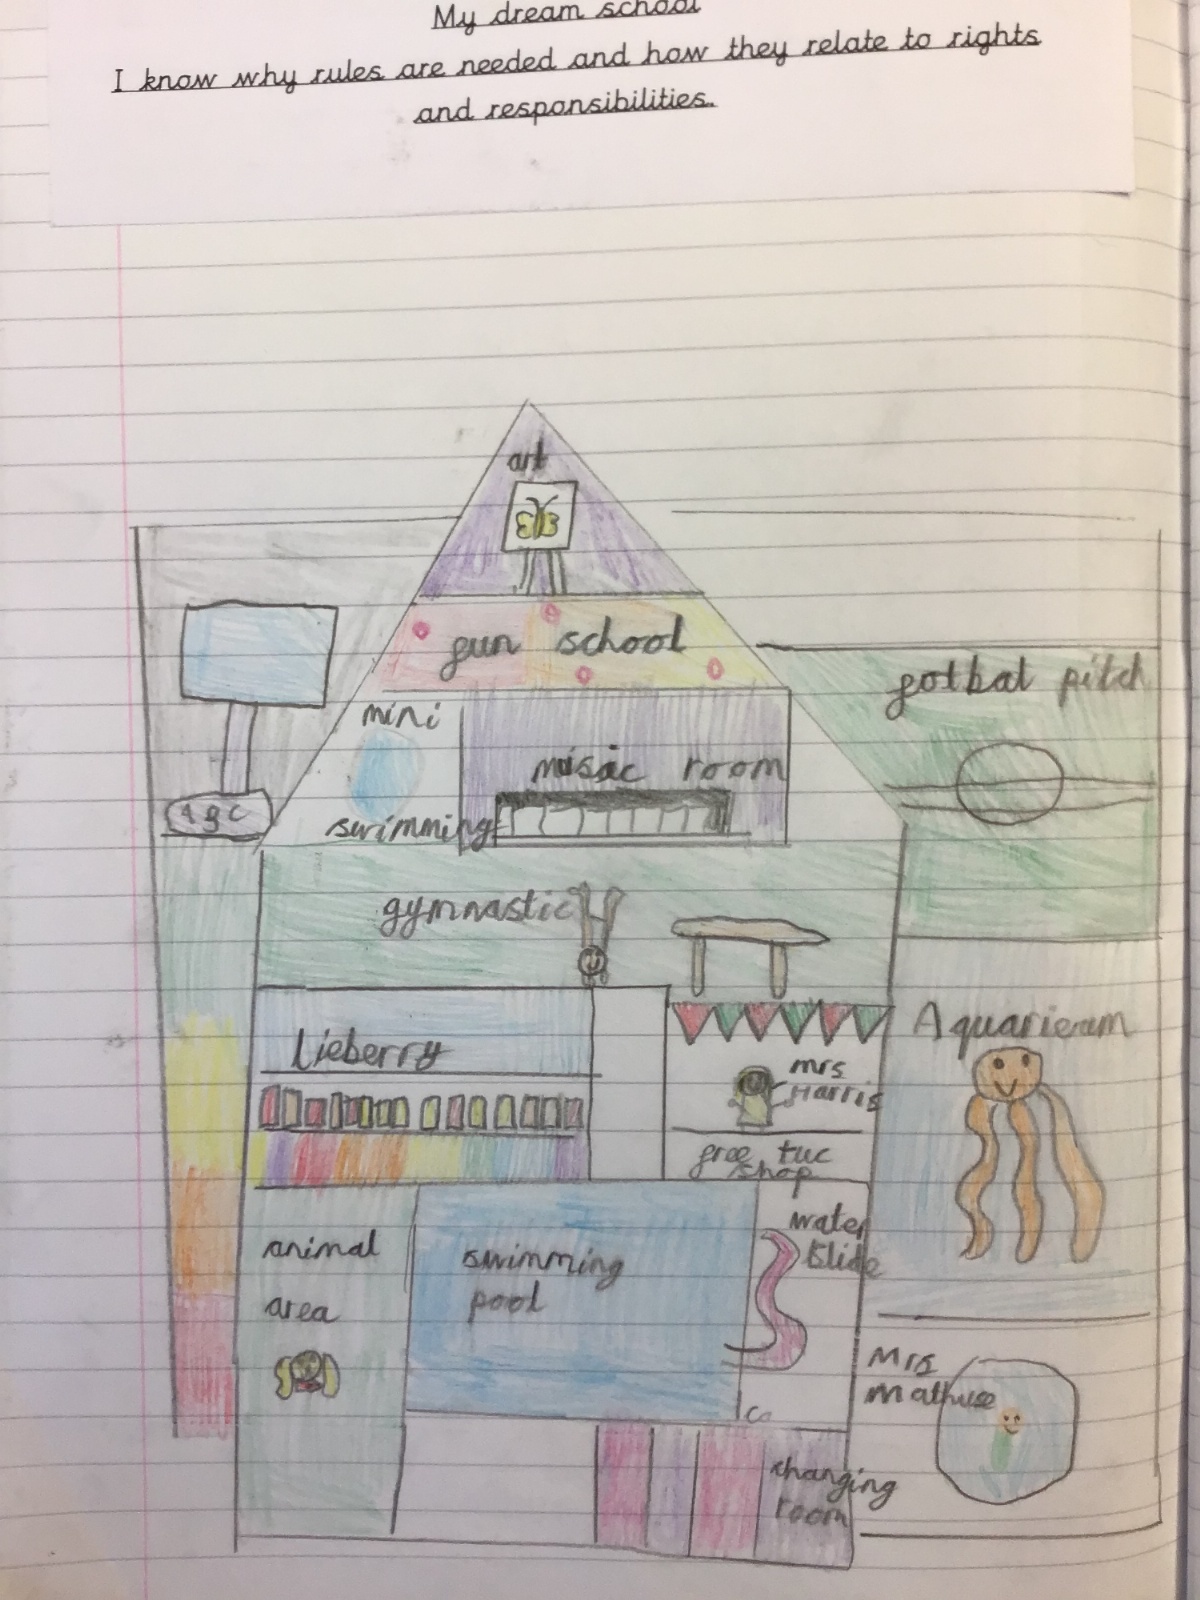 My dream school
I know why rules are needed and how they relate to rights
and responsibilities.
art
fun school
fotbal pitch
mini
swimming
music room
ABC
gymnastic
Lieberry
Aquarieum
mrs
Harris
free tuc
shop
animal
area
swimming
pool
water
slide
Mrs
changing
room